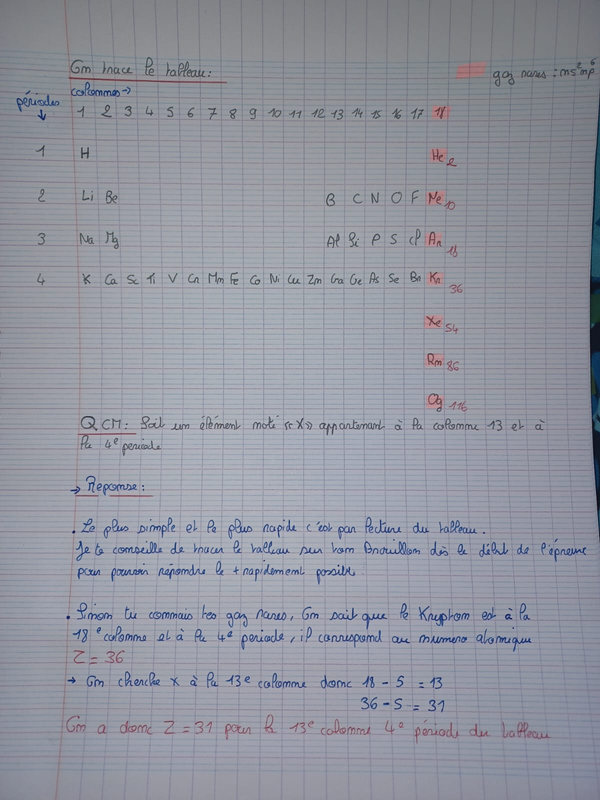 On trace le tableau :
gaz rares : ns² np⁶
colonnes →
périodes ↓
1 2 3 4 5 6 7 8 9 10 11 12 13 14 15 16 17 18
1 H He 2
2 Li Be B C N O F Ne 10
3 Na Mg Al Si P S Cl Ar 18
4 K Ca Sc Ti V Cr Mn Fe Co Ni Cu Zn Ga Ge As Se Br Kr 36
Xe 54
Rn 86
Og 116
QCM : Soit un élément noté «X» appartenant à la colonne 13 et à
la 4e periode
→ Reponse :
• Le plus simple et le plus rapide c'est par lecture du tableau.
Je te conseille de tracer le tableau sur ton brouillon dès le début de l'épreuve
pour pouvoir répondre le + rapidement possible
• Sinon tu connais tes gaz rares, On sait que le Krypton est à la
18e colonne et à la 4e periode, il correspond au numero atomique
Z = 36
→ On cherche X à la 13e colonne donc 18 - 5 = 13
36 - 5 = 31
On a donc Z = 31 pour la 13e colonne 4e période du tableau